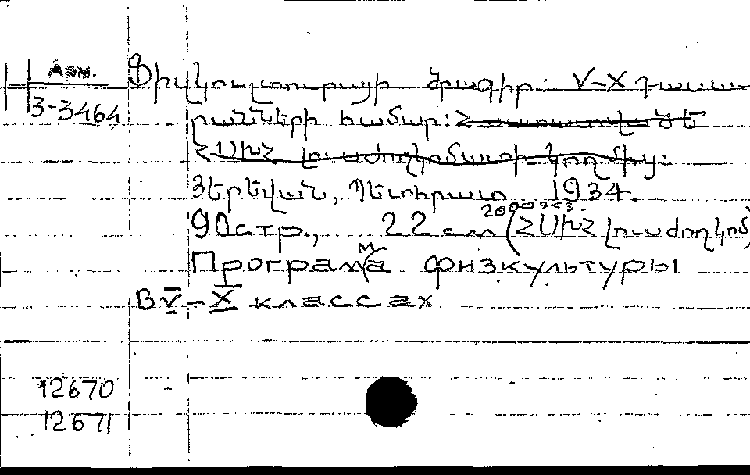 Арм. Ֆիզկուլտուրայի ծրագիր. V-X դասա-
3-3464 րանների համար:
ՀՍԽՀ լուսժողկոմատի կողմից:
Յերեվան, Պետհրատ, 1934.
90 стр., 22 см (ՀՍԽՀ լուսժողկոմ)
Программа физкультуры
в V-X классах
12670
12671